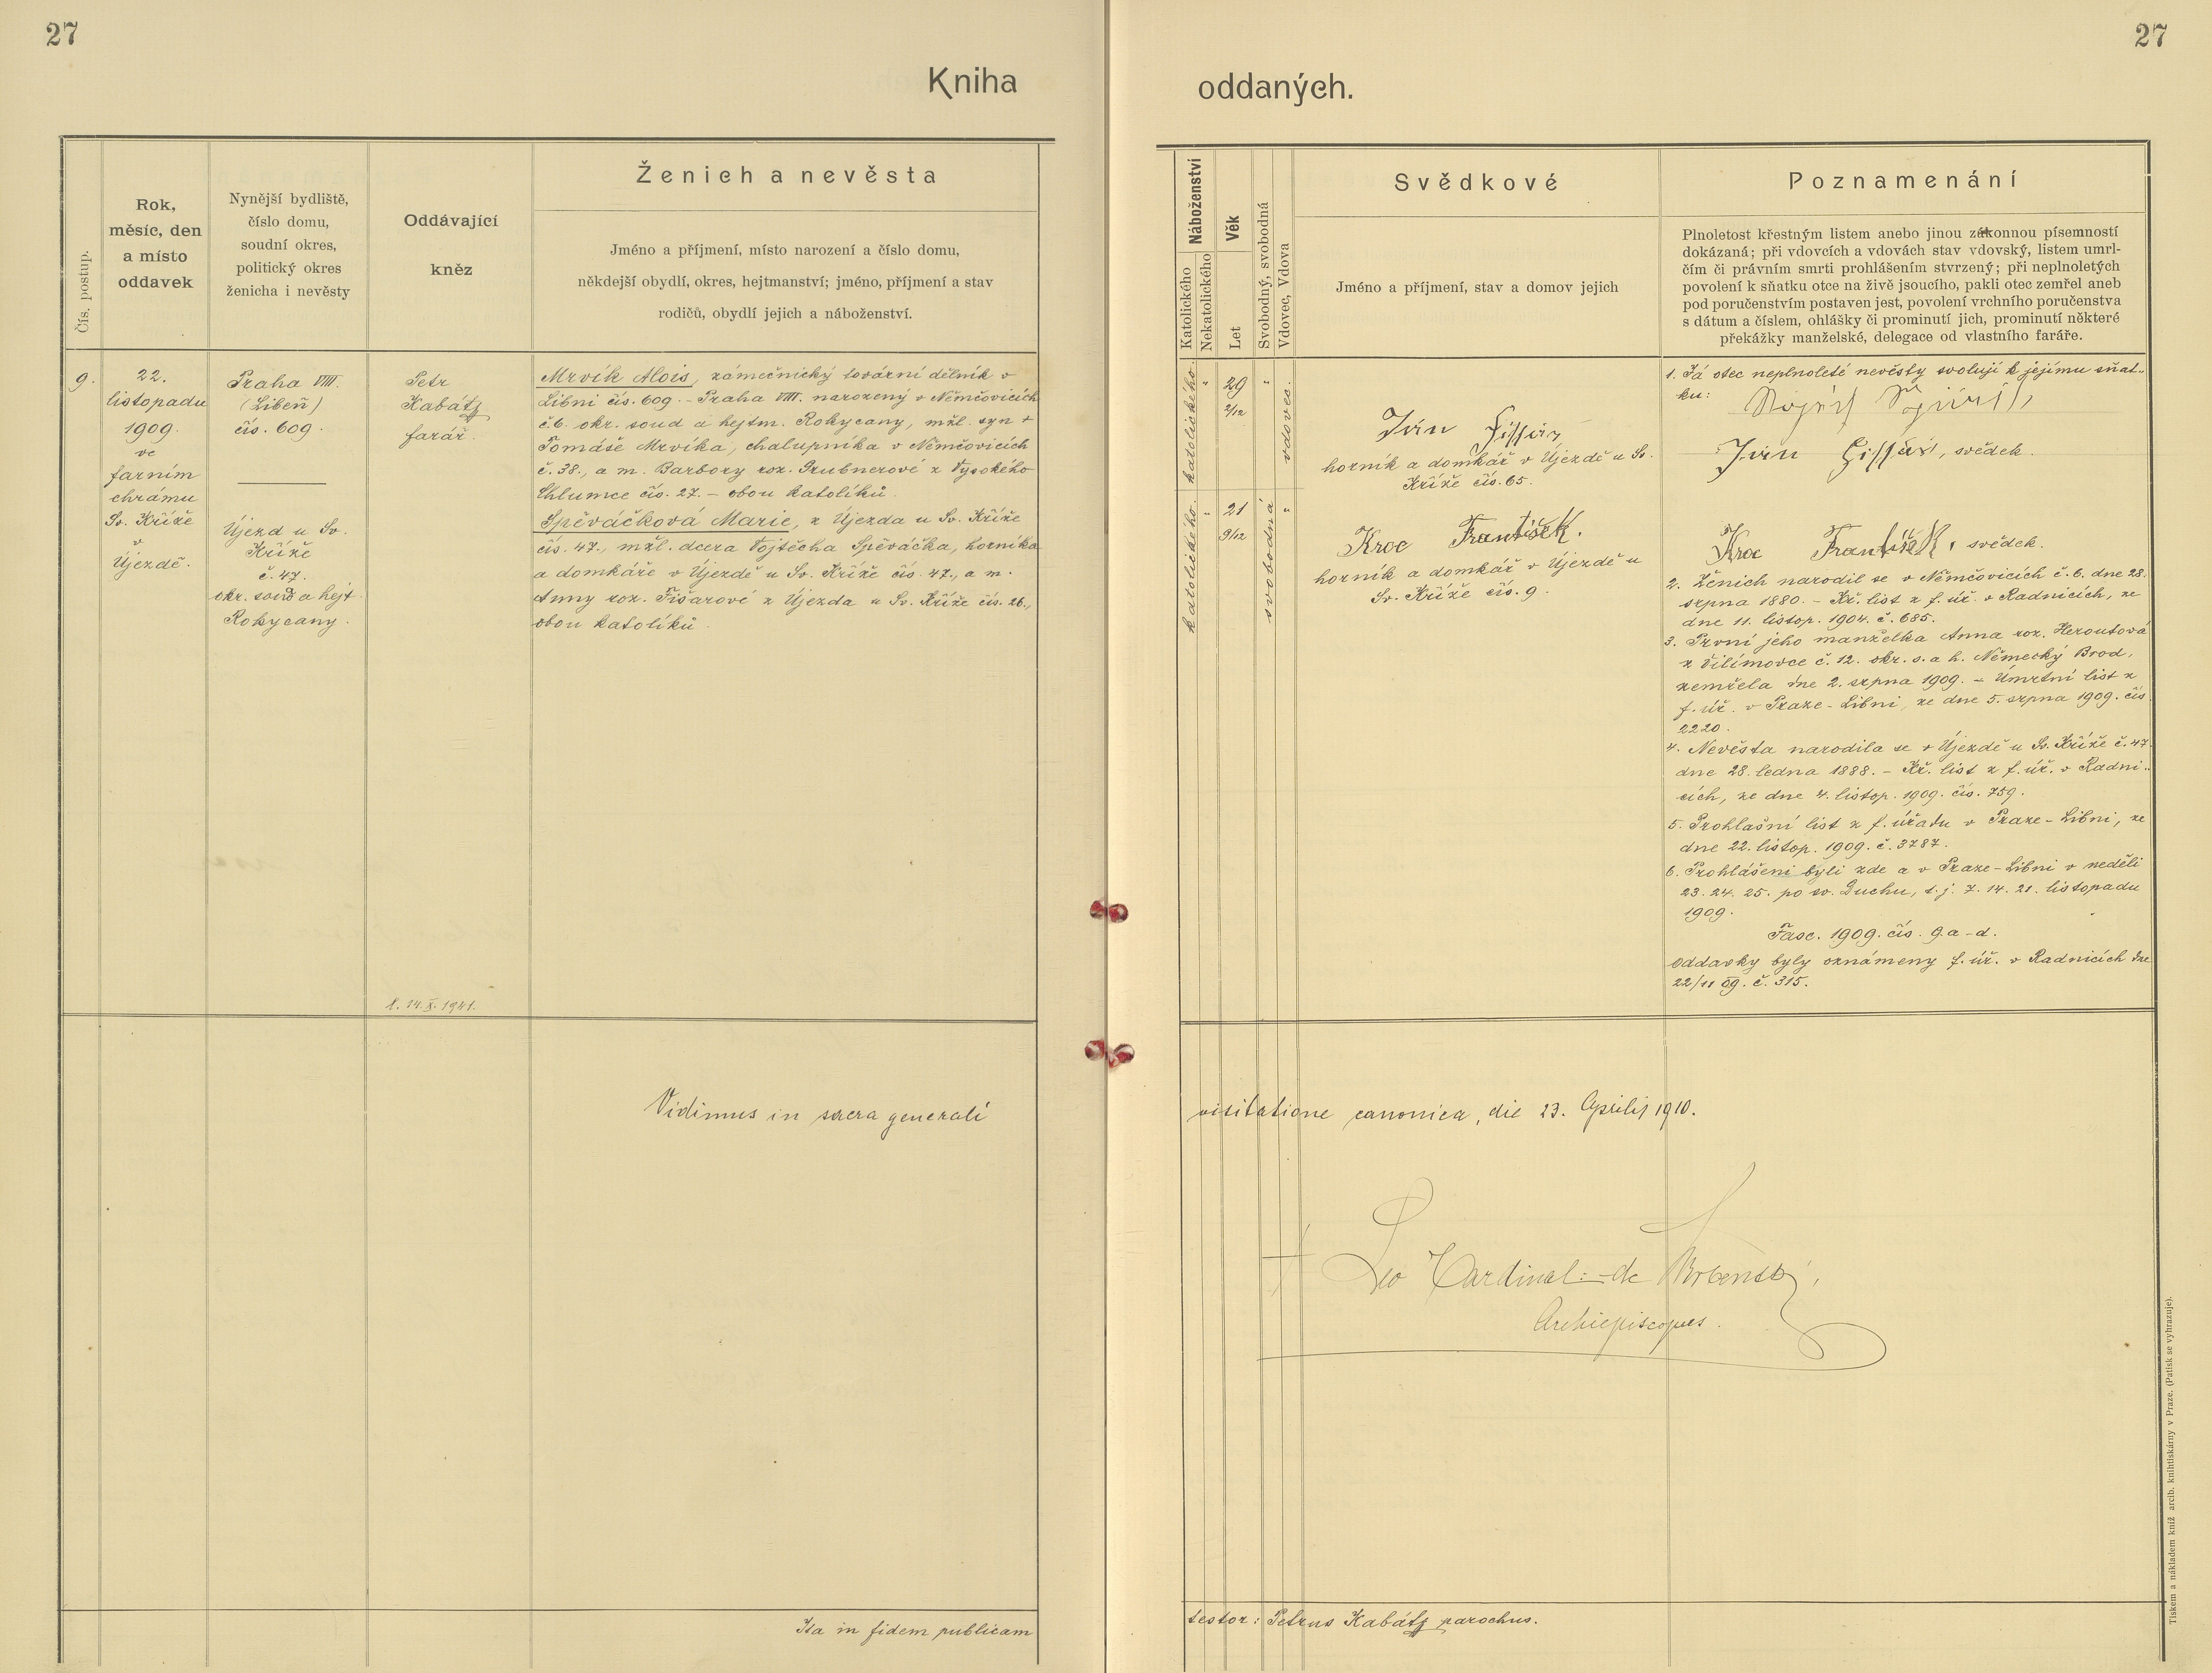 27
27
Kniha
oddaných.
Čís. postup.
Rok,
měsíc, den
a místo
oddavek
Nynější bydliště,
číslo domu,
soudní okres,
politický okres
ženicha i nevěsty
Oddávající
kněz
Ženich a nevěsta
Jméno a příjmení, místo narození a číslo domu,
někdejší obydlí, okres, hejtmanství; jméno, příjmení a stav
rodičů, obydlí jejich a náboženství.
9.
22.
listopadu
1909.
ve
farním
chrámu
Sv. Kříže
v
Újezdě.
Praha VIII.
(Libeň)
čís. 609.
Újezd u Sv.
Kříže
č. 47.
okr. soud a hejt.
Rokycany.
Petr
Kabátz
farář.
Mrvík Alois, zámečnický tovární dělník v
Libni čís. 609. - Praha VIII. narozený v Němčovicích
č. 6. okr. soud a hejtm. Rokycany, mžl. syn +
Tomáše Mrvíka, chalupníka v Němčovicích
č. 38., a m. Barbory roz. Grubnerové z Vysokého
Chlumce čís. 27. - obou katolíků.
Spěváčková Marie, z Újezda u Sv. Kříže
čís. 47., mžl. dcera Vojtěcha Spěváčka, horníka
a domkáře v Újezdě u Sv. Kříže čís. 47., a m.
Anny roz. Fišarové z Újezda u Sv. Kříže čís. 26.,
obou katolíků.
14. X. 1941.
Vidimus in sacra generali
Ita in fidem publicam
Náboženství
Katolického
Nekatolického
Věk
Let
Svobodný, svobodná
Vdovec, Vdova
Svědkové
Jméno a příjmení, stav a domov jejich
Poznamenání
Plnoletost křestným listem anebo jinou zákonnou písemností
dokázaná; při vdovcích a vdovách stav vdovský, listem umrl-
čím či právním smrti prohlášením stvrzený; při neplnoletých
povolení k sňatku otce na živě jsoucího, pakli otec zemřel aneb
pod poručenstvím postaven jest, povolení vrchního poručenstva
s dátum a číslem, ohlášky či prominutí jich, prominutí některé
překážky manželské, delegace od vlastního faráře.
katolického.
29
2/12
vdovec.
katolického.
21
9/12
svobodná
Fišar
horník a domkář v Újezdě u Sv.
Kříže čís. 65.
Kroc František.
horník a domkář v Újezdě u
Sv. Kříže čís. 9.
1. Já otec neplnoleté nevěsty svoluji k jejímu sňat-
ku:
Fišar, svědek.
Kroc František, svědek.
2. Ženich narodil se v Němčovicích č. 6. dne 28.
srpna 1880. - Kř. list z f. úř. v Radnicích, ze
dne 11. listop. 1904. č. 685.
3. První jeho manželka Anna roz. Heroutová
z Šilimovce č. 12. okr. s. a h. Německý Brod,
zemřela dne 2. srpna 1909. - Úmrtní list z
f. úř. v Praze-Libni, ze dne 5. srpna 1909. čís.
2220.
4. Nevěsta narodila se v Újezdě u Sv. Kříže č. 47.
dne 28. ledna 1888. - Kř. list z f. úř. v Radni-
cích, ze dne 4. listop. 1909. čís. 759.
5. Prohlašní list z f. úřadu v Praze-Libni, ze
dne 22. listop. 1909. č. 3787.
6. Prohlášeni byli zde a v Praze-Libni v neděli
23. 24. 25. po sv. Duchu, t. j. 7. 14. 21. listopadu
1909.
Fasc. 1909. čís. 9. a-d.
Oddavky byly oznámeny f. úř. v Radnicích dne
22/11 09. č. 315.
visitatione canonica, die 23. Aprilis 1910.
† Leo Cardinal de Skrbenský,
Archiepiscopus.
testor: Petrus Kabátz parochus.
Tiskem a nákladem kníž. arcib. knihtiskárny v Praze. (Patisk se vyhrazuje).